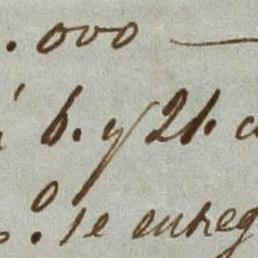 .000 —
6. y 21.
se entreg